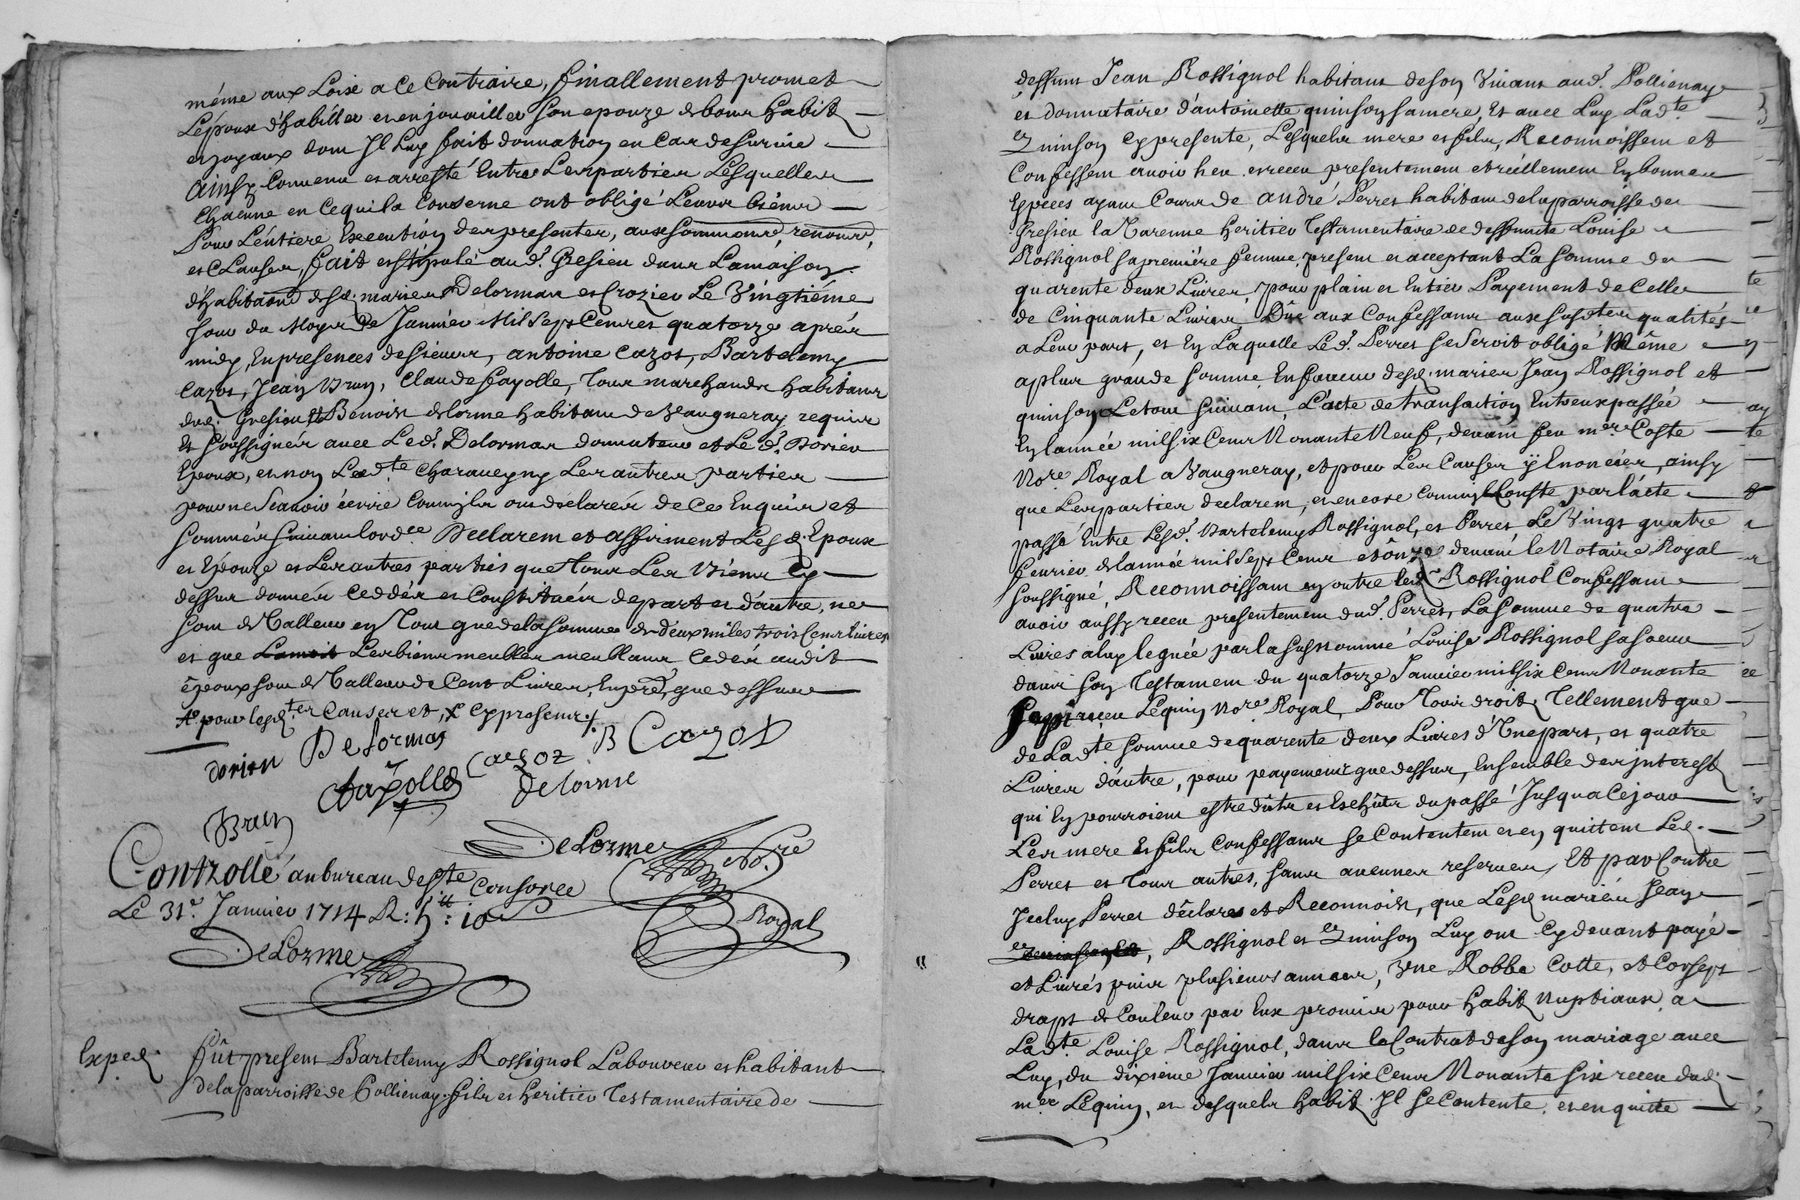 même aux Loix a Ce Contraire, finallement promet
L'époux d'habiller et enjouailler son epouze de bons habits
et joyaux dont Il Luy fait donnation en Cas de survie
ainsy Convenu et arresté Entre Les parties Lesquelles
Chacune en Ce qui la Conserne ont obligé Leurs biens
Pour L'entiere Execution des presentes, aux soumissions, renons,
et Clauses, fait et stipulé aud. Gresieu dans La maison
d'habitaon desd. mariés Delorman et Crozier Le Vingtiéme
Jour du Moys De Janvier Mil Sept Centz quatorze aprés
midy, En presences de sieurs, antoine Cazot, Bartelemy
Cazot, Jean Brun, Claude fayolle, Tous marchands habitans
dud. Gresieu Et Benoist delorme habitant de Vaugneray requis
Et soussignés avec Led. Delorman donnateur et Led. Dorieu
Epoux, et non Ladte Charaveyny Les autres parties
pour ne Scavoir écrire Comm'ils ont declarés de Ce Enquis et
sommés suivant lordce Declarent et affirment Lesd. Epoux
et Epouze et Les autres parties que Tous Les Biens Cy
dessus donnés Ceddés et Constitués de part et d'autre, ne
sont de Valleur en Tout que de la somme de deux miles trois Cens Livres
et que Les biens meubles meublans Cedés audit
époux sont de Valleur de Cent Livres, En pred. que dessus
pour lesdtes Causes et, Cy presens ./.
dorieu Delorman Cazoz B Cazot
fayolle delorme
Brun
DeLorme Nore
Royal
Controllé au bureau de Ste Consorce
Le 31e. Janvier 1714 R: 5tt: 10s
DeLorme
Exped.
fût present Bartelemy Rossignol Laboureur et habitant
de la parroisse de Pollienay fils et heritier Testamentaire de
deffunt Jean Rossignol habitant de son Vivant aud. Pollienay
et donnataire d'antoinette quinson sa mere, Et avec Luy Ladte
Quinson Cy presente, Lesquels mere et fils, Reconnoissent et
Confessent avoir heu et receu presentement et réellement En bonnes
Especes ayant Cours de André Perret habitant de la parroisse de
Gresieu la Varenne heritier Testamentaire de deffuncte Louise
Rossignol sa première femme, present et acceptant La somme de
quarente deux Livres, pour plain et Entier Payement de Celle
de Cinquante Livres Dûe aux Confessans aux susdtes qualités
a Leur part, et En Laquelle Led. Perret se Seroit obligé Même
a plus grande somme En faveur desd. mariés Jean Rossignol et
quinson Le tout suivant, L'acte de transaction Entr'eux passée
En l'année mil six Cens Nonante Neuf, devant feu mer Coste
Nore Royal a Vaugneray, et pour Les Causes ÿ Enoncées, ainsy
que Les parties declarent, et encore Comm'Il Conste par l'acte
passé Entre Lesd. Bartelemy Rossignol, et Perret Le Vingt quatre
fevrier de l'année mil sept Cens et ônze devant le Notaire Royal
soussigné, Reconnoissant en outre led. Rossignol Confessant
avoir aussy receu presentement dud. Perret, La somme de quatre
Livres a luy leguée par la susnommé Louise Rossignol sa soeur
dans son Testament du quatorze Janvier mil six Cens Nonante
sept receu Lequin Nore Royal, Pour Tous droits, Tellement que
de Ladte somme de quarente deux Livres d'Une part, et quatre
Livres d'autre, pour payement que dessus, Ensemble des jnterest
qui En pourroient estre dûts et Eschûts du passé Jusqu'a Ce jour
Les mere Et fils Confessans se Contentent et en quittent Led.
Perret et Tous autres, sans aucunes reserves, Et par Contre
Jceluy Perret déclare et Reconnoist, que Lesd. mariés Jean
Rossignol et Quinson Luy ont Cy devant payé
et Livrés puis plusieurs années, Une Robbe Cotte, et Corsept
draps de Couleur par Eux promis pour habits Nuptiaux a
Ladte Louise Rossignol, dans le Contrat de son mariage avec
Luy, du dixieme Janvier mil six Cens Nonante six receu dud.
mer Lequin, et desquels habits Il se Contente, et en quitte